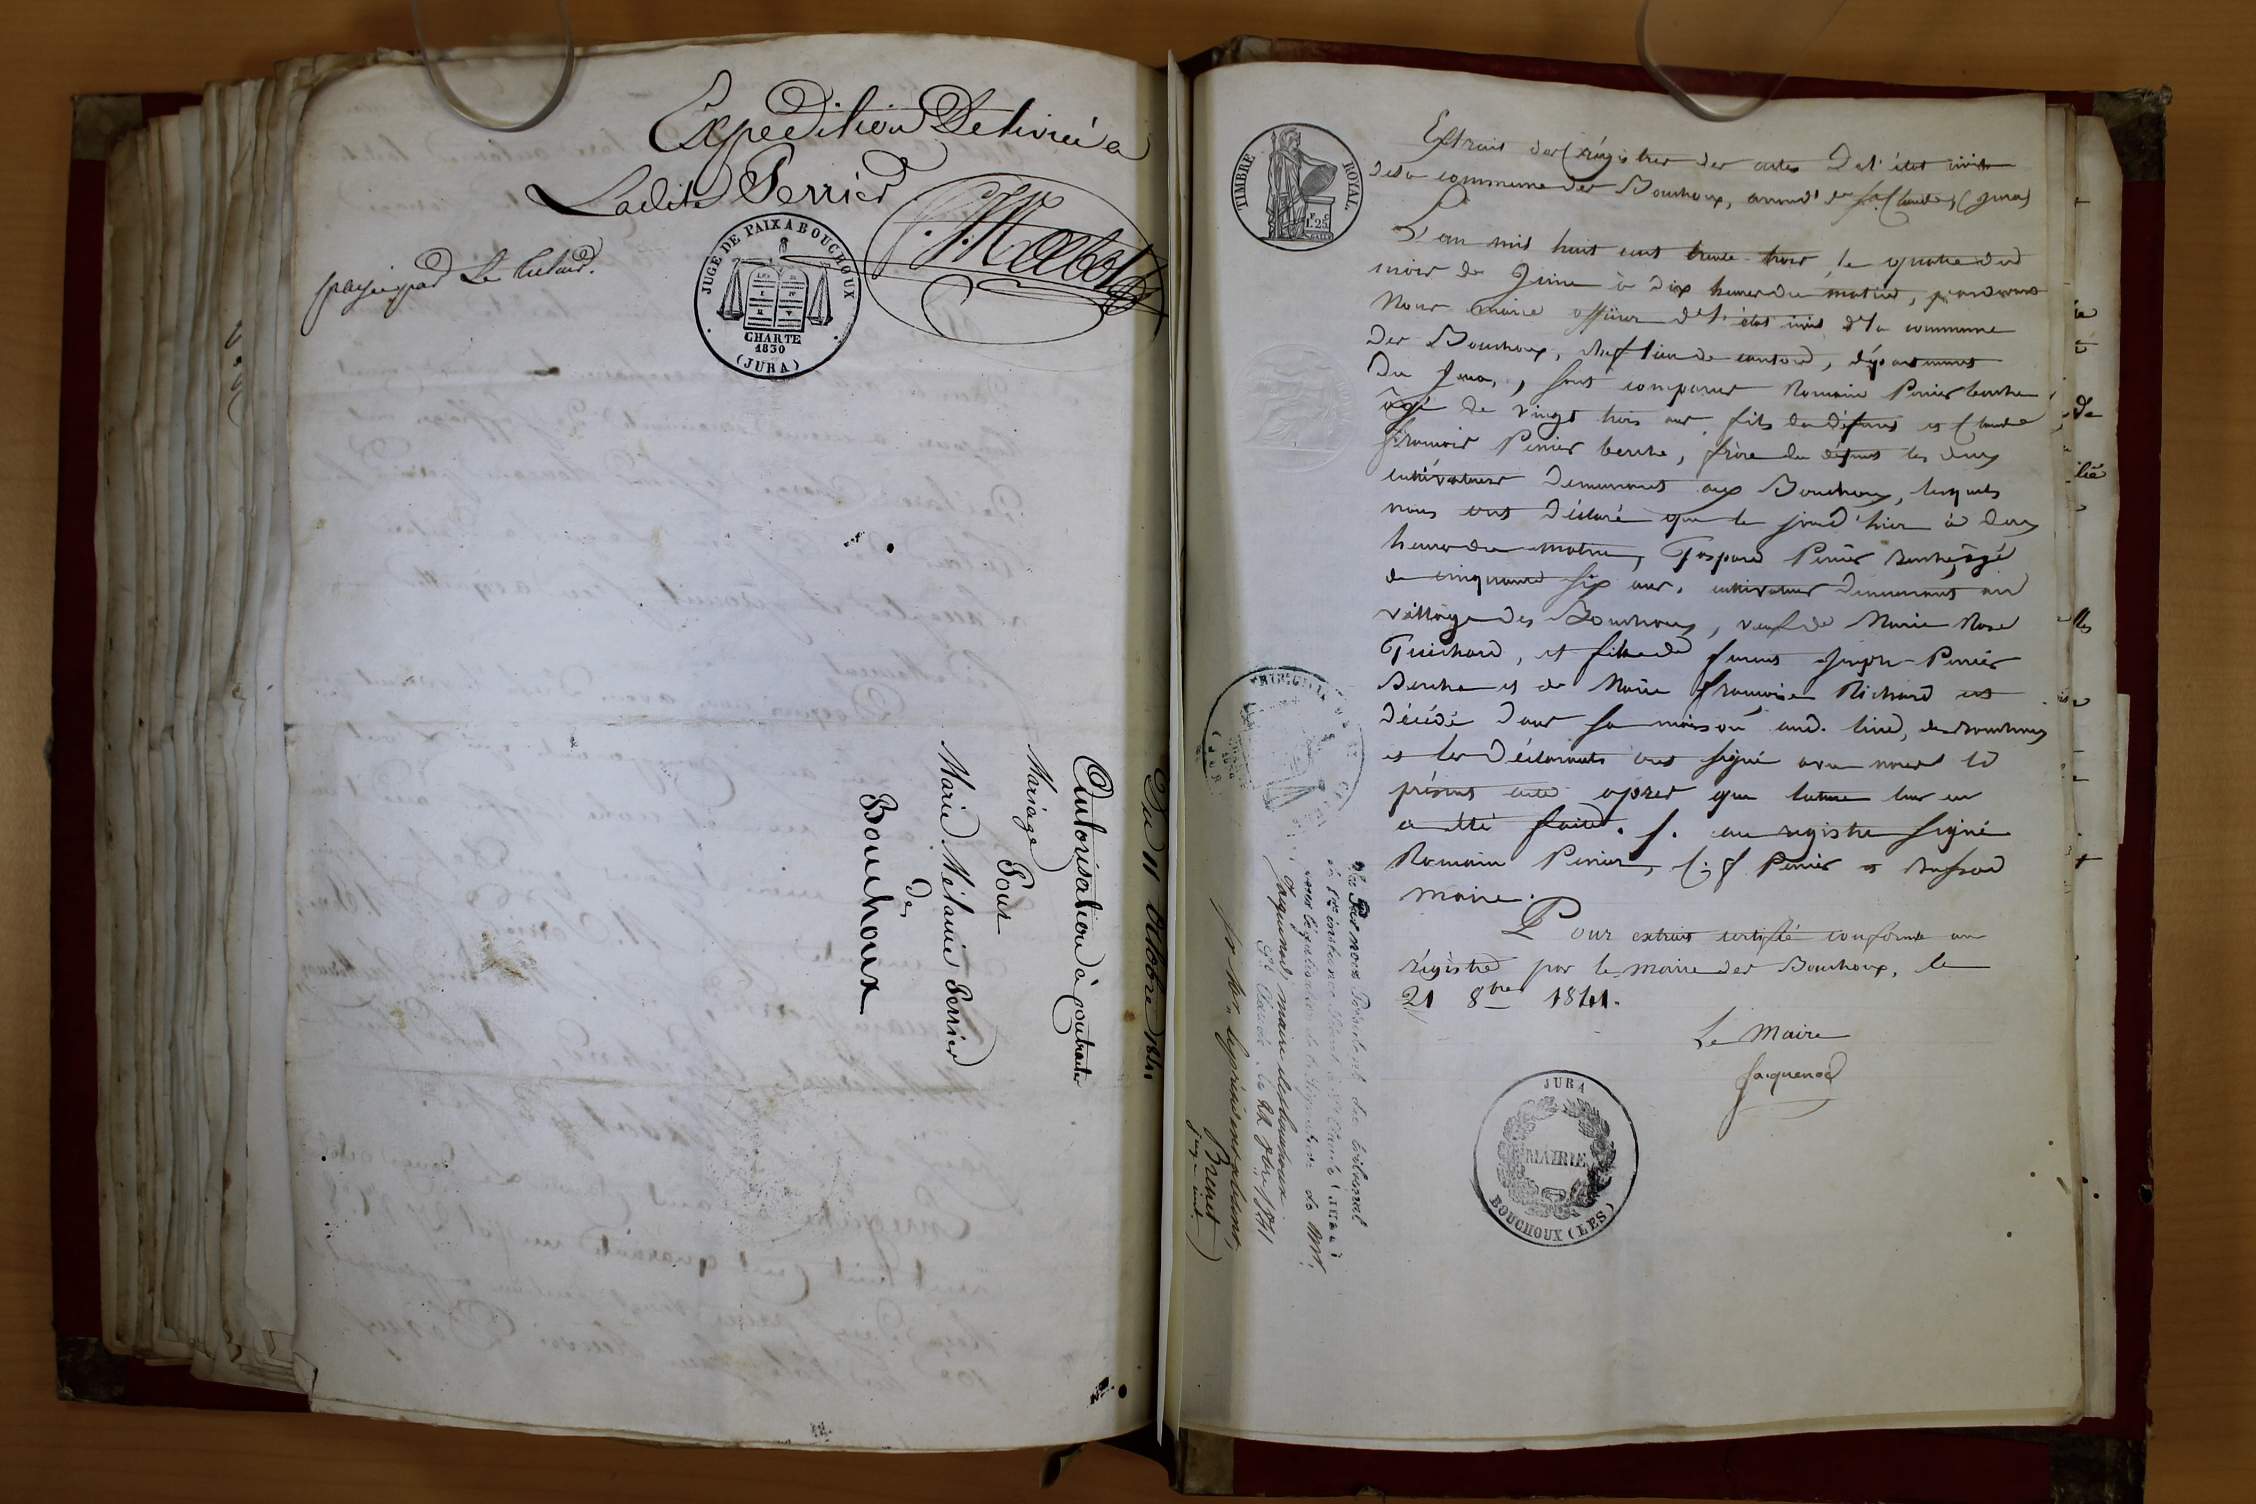 Expedition Délivrée a
Ladite Perrier
payé par Le tuteur.
JUGE DE PAIX A BOUCHOUX
CHARTE
1830
(JURA)
Du 11 octobre 1841
Autorisation à contracter
Mariage
Pour
Marie Mélanie Perrier
des
Bouchoux
TIMBRE ROYAL
1.25
Extrait des régistres des actes de l'état civil
de la commune des Bouchoux, arrond.t de St Claude (Jura)
L'an mil huit cent trente-trois, le quatre du
mois de Juin à dix heures du matin, pardevant
Nous maire officier de l'état civil de la commune
des Bouchoux, chef lieu de canton, département
du Jura, sont comparus Romain Perrier
âgé de vingt trois ans, fils du défunt et Claude
François Perrier, frère du défunt les deux
cultivateurs demeurant aux Bouchoux, lesquels
nous ont déclaré que le jour d'hier à deux
heures du matin, Gaspard Perrier âgé
de cinquante six ans, cultivateur demeurant au
village des Bouchoux, veuf de Marie Rose
Guichard, et fils de furent Joseph Perrier
et de Marie Françoise Richard est
décédé dans sa maison aud. lieu, des Bouchoux
et les déclarants ont signé avec nous le
présent acte après que lecture leur en
a été faite. au registre signé
Romain Perrier, C. f Perrier et
maire.
Pour extrait certifié conforme au
régistre par le maire des Bouchoux, le
21 8bre 1841.
Le Maire
Jacquenod
JURA
MAIRIE
BOUCHOUX (LES)
Vu Par nous Président du tribunal
de 1ère instance séant à St Claude (Jura)
pour légalisation de la signature de Mr.
Jacquenod, maire des bouchoux.
St Claude le 22 8bre 1841
pr Mr. le président absent,
Brenet